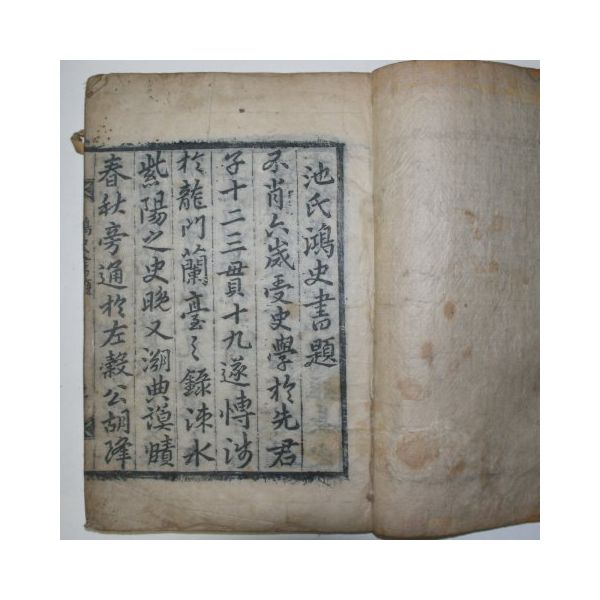 池氏鴻史書題
不肖六歲受史學於先君
子十二三毋貫十九遂博涉
於龍門蘭臺之錄涑水
紫陽之史晚又溯典謨賾
春秋旁通於左穀公胡降